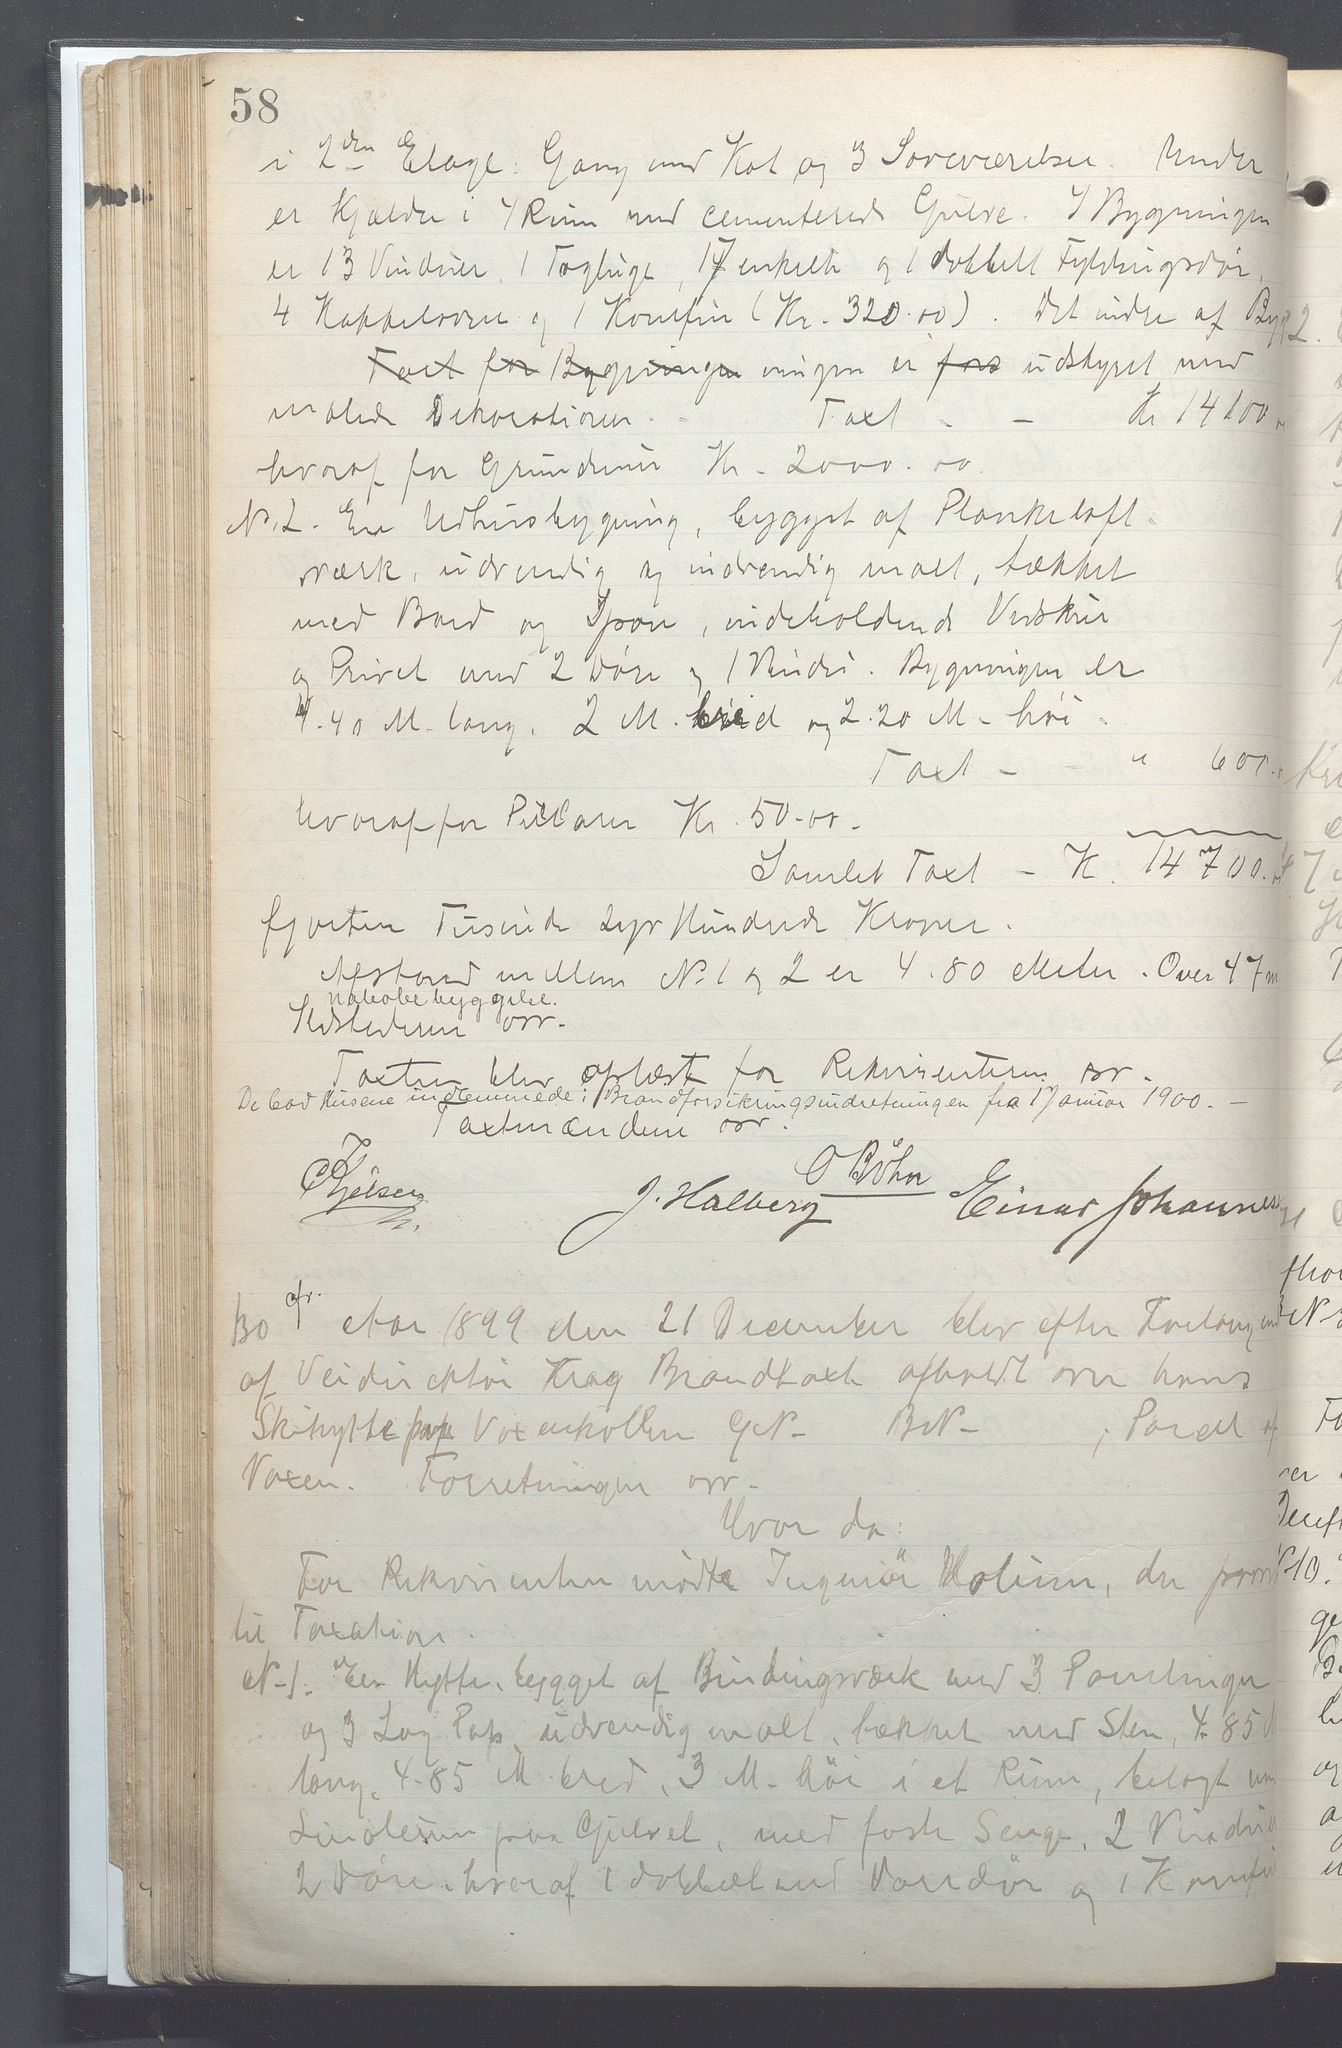 58
i 2den Etage: Gang med Kot og 3 Soveværelser. Under
er Kjælder i 4 Rum med cementerede Gulve. I Bygningen
er 13 Vinduer, 1 Tagluge, 17 enkelte og 1 dobbelt Fyldingsdør,
4 Kakkelovne og 1 Komfur (Kr. 320.00). Det indre af Byg
Taxt for Bygningen ningen er udstyret med
malede Dekorationer. Taxt - - Kr 14100
hvoraf for Grundmur Kr. 2000.00.
No. 2. En Udhusbygning, bygget af Plankeloft
værk, udvendig og indvendig malt, tækket
med Bord og Spon, indeholdende Vedskur
og Privet med 2 Døre og 1 Vindu. Bygningen er
4.40 M. lang, 2 M. bred og 2.20 M. høi.
Taxt - - " 600.
hvoraf for Pillarer Kr. 50.00.
Samlet Taxt - Kr. 14700.
fjorten Tusinde syv Hundrede Kroner.
Afstand mellem No. 1 og 2 er 4.80 Meter. Over 47 m
nabobebyggelse.
Ildstederne osv.
Taxten blev oplæst for Rekvirenten osv.
De bad Husene indlemmede i Brandforsikringsindretningen fra 1 Januar 1900. -
Taxtmændene osv.
O Bøhn
J. Halberg Einar Johannes
afr.
Bo Aar 1899 den 21 December blev efter Forlangende
af Veidirektør Krag Brandtaxt afholdt over hans
Skihytte paa Voxenkollen GN- BN- , Parcel af
Voxen. Forretningen osv.
Hvor da:
For Rekvirenten mødte Ingeniør Holium, der
til Taxation.
No. 1. En Hytte, bygget af Bindingsværk med 3 Panelinger
og 3 Lag Pap, udvendig malt, tækket med Sten, 4.85 M
lang, 4.85 M bred, 3 M. høi i et Rum, belagt med
Linoleum paa Gulvet, med faste Senge, 2 Vinduer
2 Døre hvoraf 1 dobbelt med Yderdør og 1 Komfur